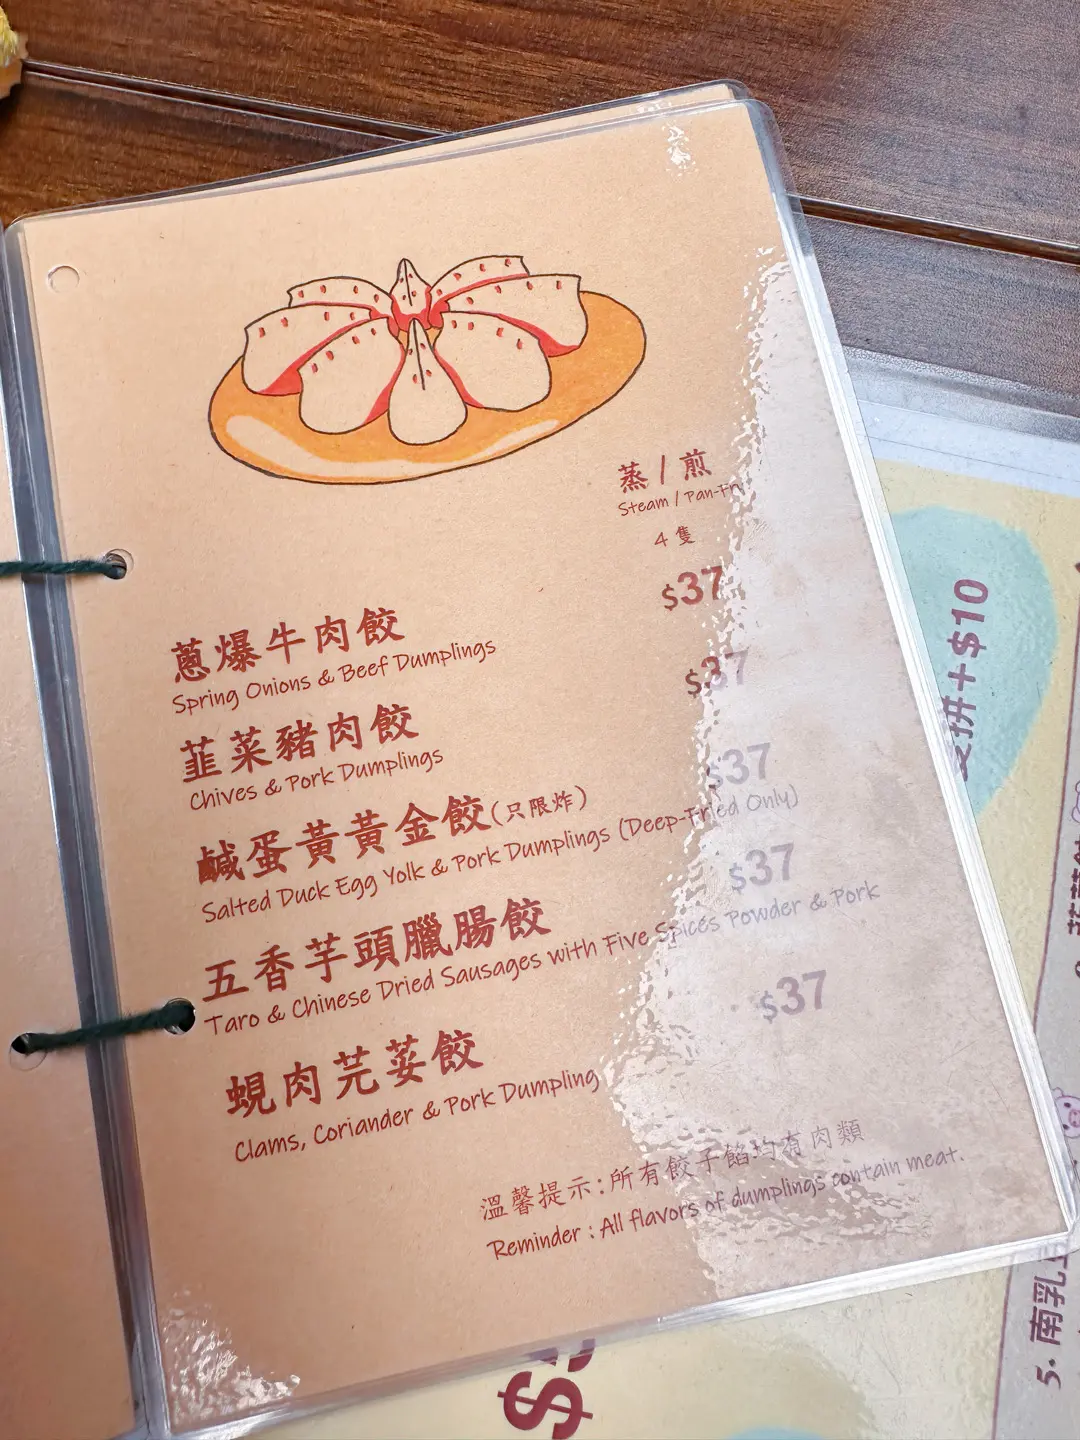 蒸 / 煎
Steam / Pan-Fr
4 隻
$37
蔥爆牛肉餃
Spring Onions & Beef Dumplings
$37
韮菜豬肉餃
Chives & Pork Dumplings
$37
鹹蛋黃黃金餃(只限炸)
Salted Duck Egg Yolk & Pork Dumplings (Deep-Fried Only)
$37
五香芋頭臘腸餃
Taro & Chinese Dried Sausages with Five Spices Powder & Pork
$37
蜆肉芫荽餃
Clams, Coriander & Pork Dumpling
溫馨提示:所有餃子餡均有肉類
Reminder : All flavors of dumplings contain meat.
拼+$10
5. 南乳
$